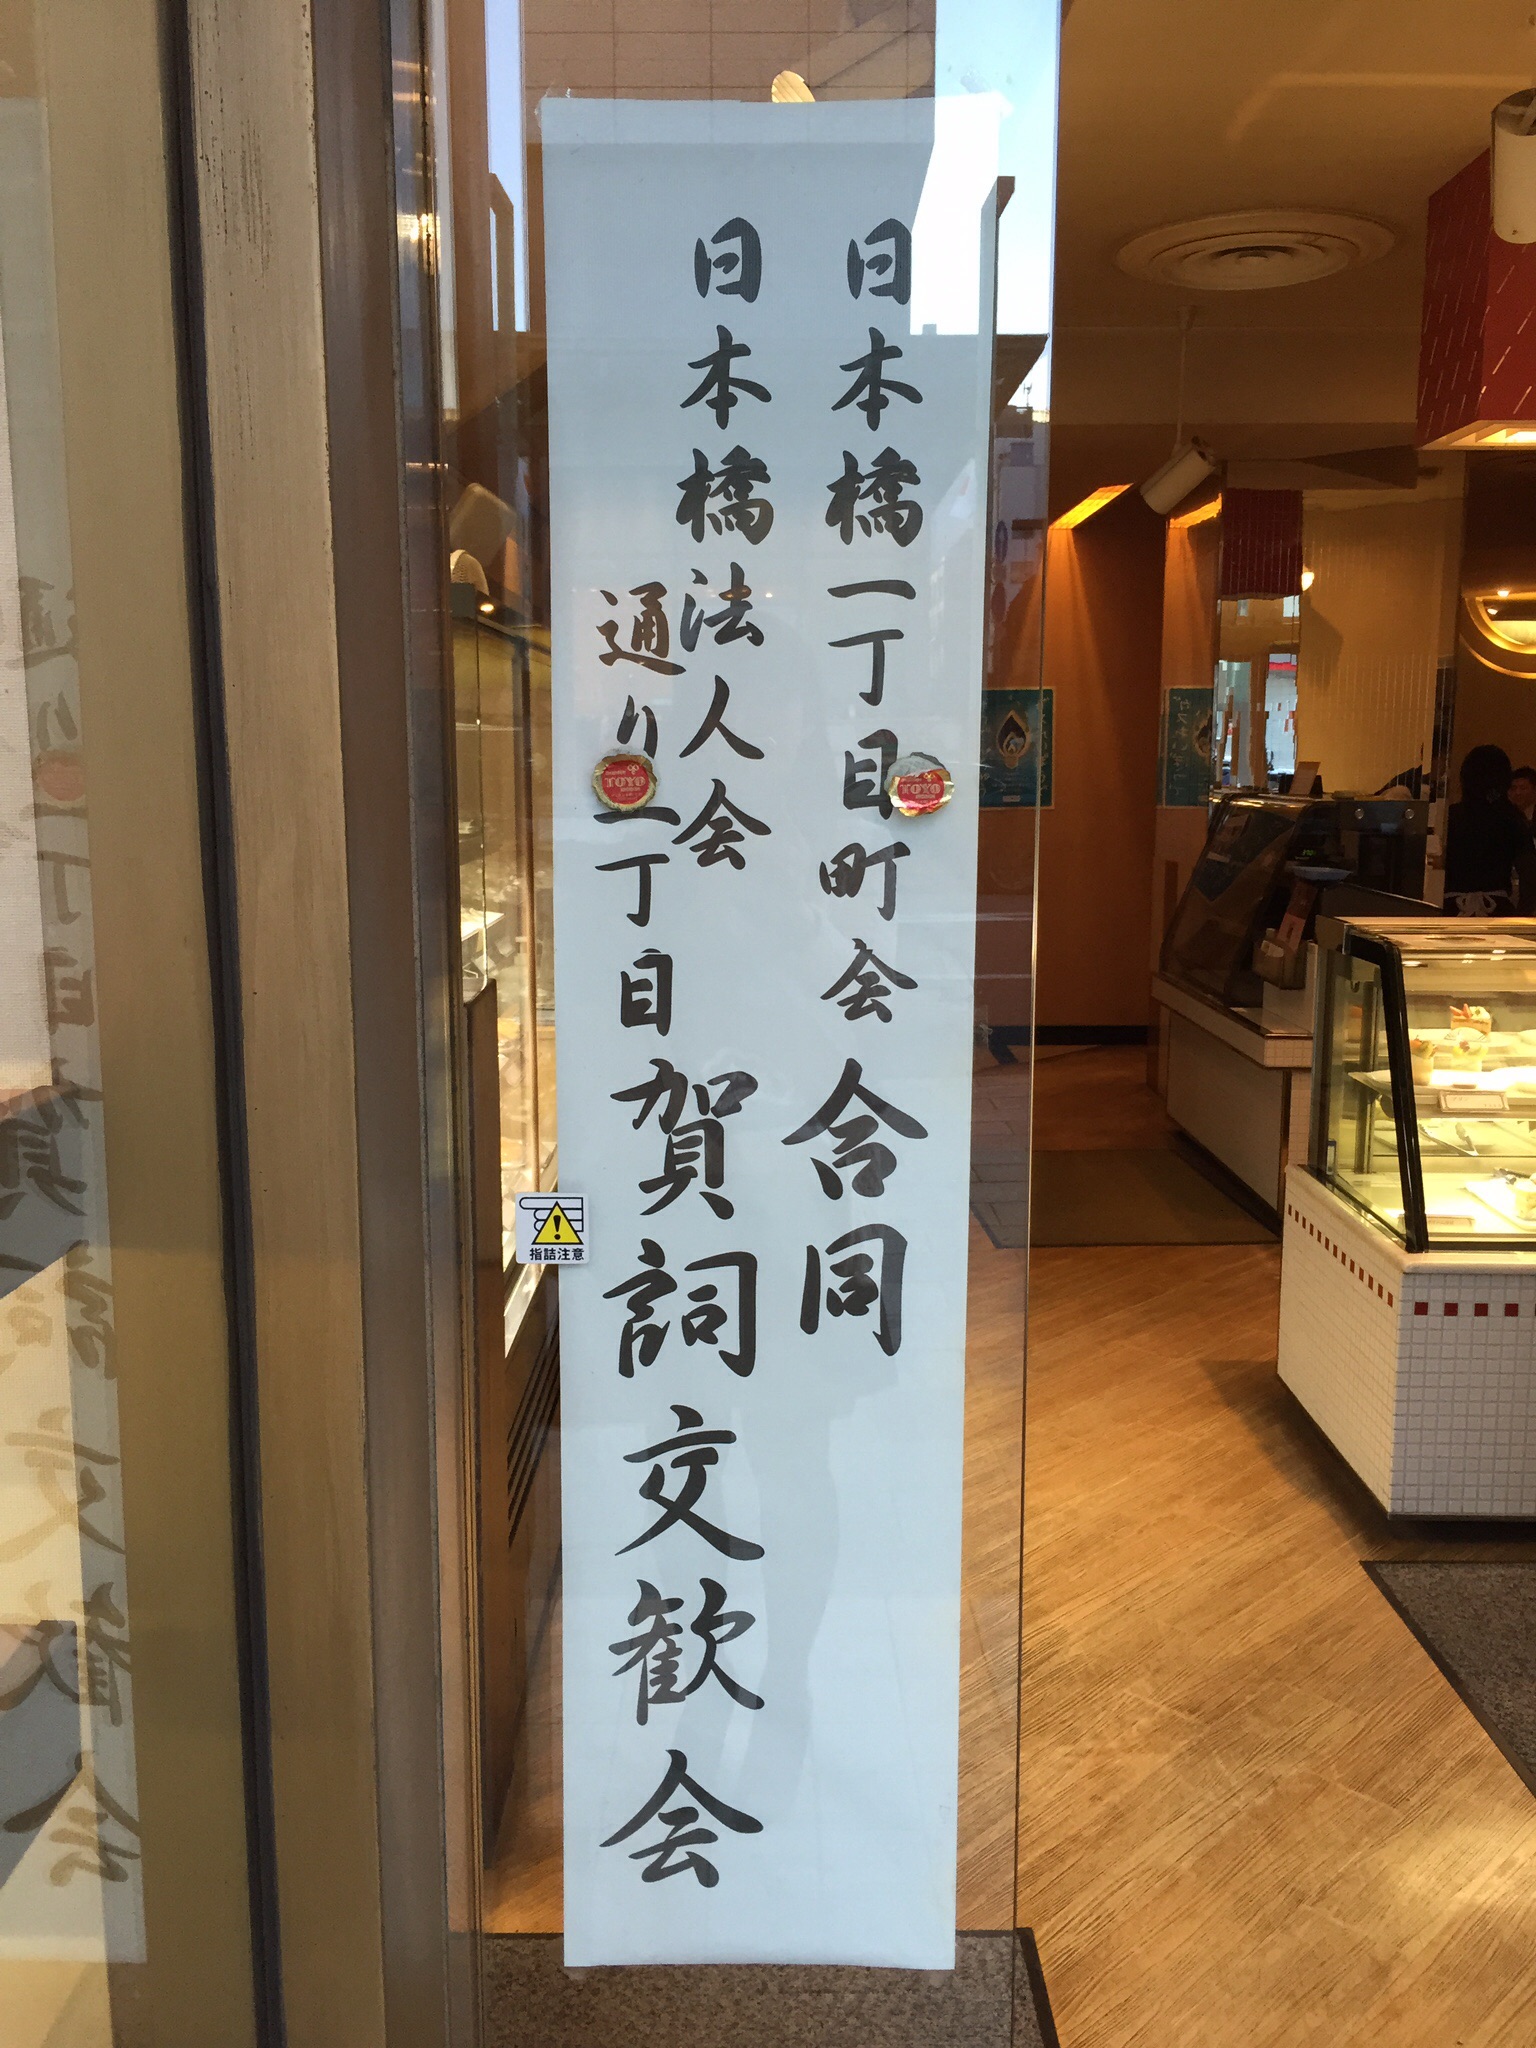 日本橋一丁目町会 合同
日本橋法人会
通り一丁目賀詞交歓会
TOYO
TOYO
指詰注意